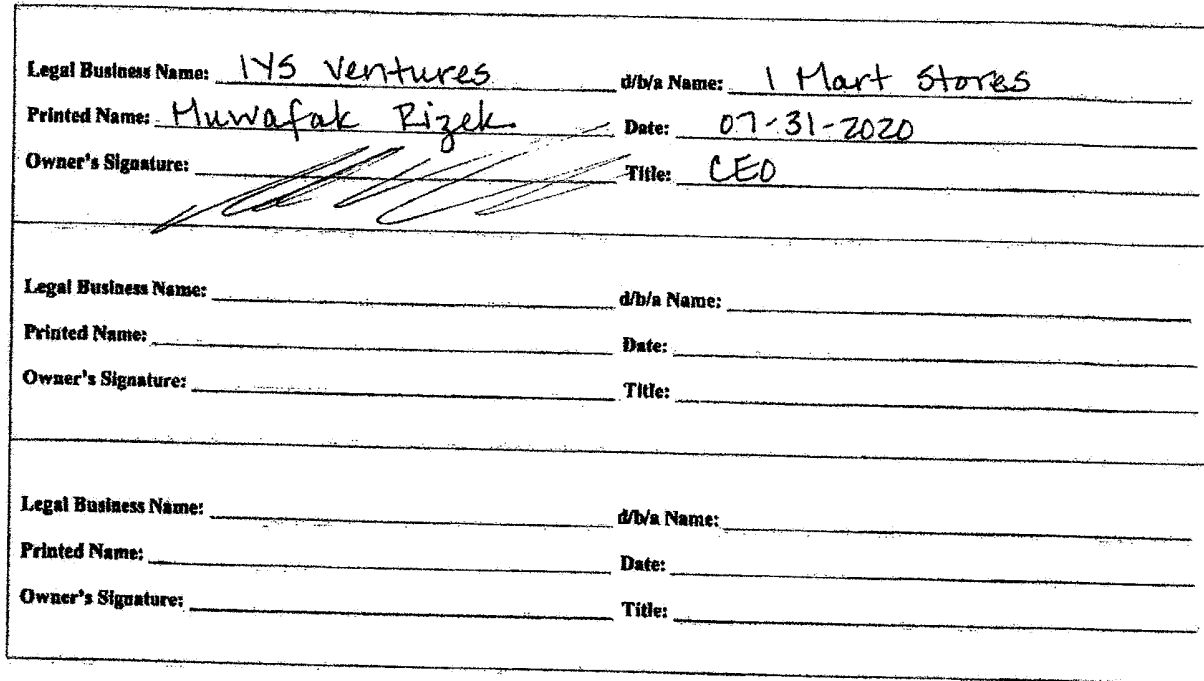 Legal Business Name: IYS Ventures d/b/a Name: 1 Mart Stores
Printed Name: Muwafak Rizek Date: 07-31-2020
Owner's Signature: Title: CEO
Legal Business Name: d/b/a Name:
Printed Name: Date:
Owner's Signature: Title:
Legal Business Name: d/b/a Name:
Printed Name: Date:
Owner's Signature: Title: